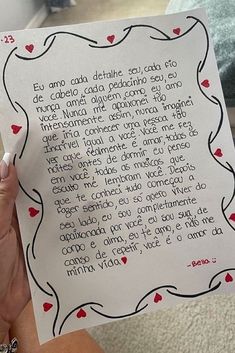 23
Eu amo cada detalhe seu, cada fio
de cabelo, cada pedacinho seu, eu
nunca amei alguém como eu amo
você. Nunca me apaixonei tão
intensamente assim, nunca imaginei
que iria conhecer uma pessoa tão
incrível igual a você. Você me fez
ver que realmente é amar, todas as
noites antes de dormir eu penso
em você, todas as músicas que
escuto me lembram você. Depois
que te conheci tudo começou a
fazer sentido, eu só quero viver do
seu lado, eu sou completamente
apaixonada por você eu sou sua, de
corpo e alma, eu te amo, e não me
canso de repetir, você é o amor da
minha vida
-Bella